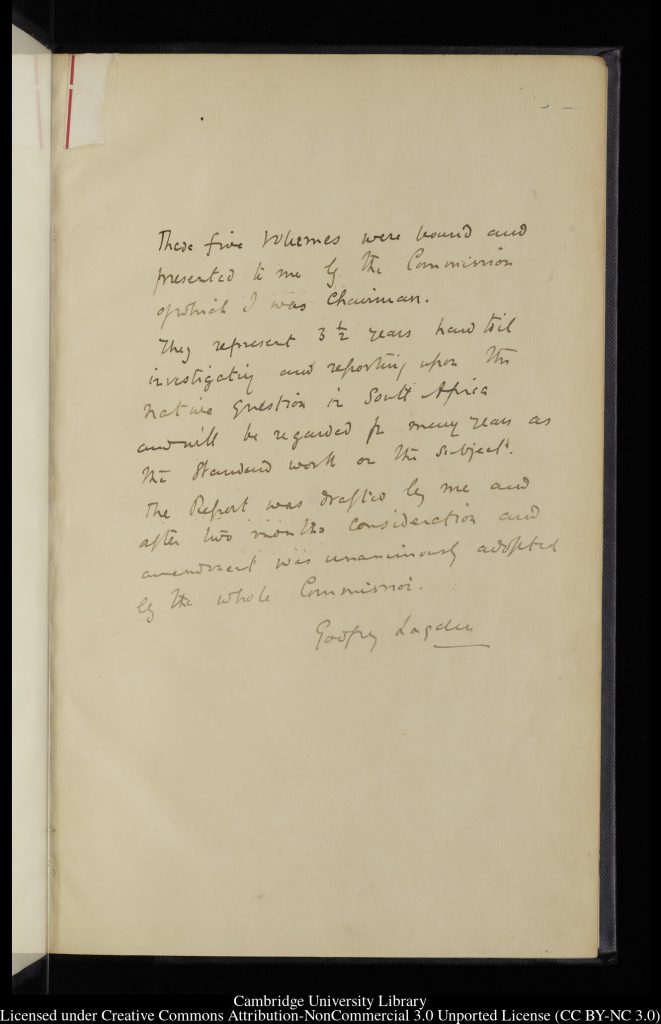 These five Volumes were bound and
presented to me by the Commission
of which I was Chairman.
They represent 3 1/2 years hard toil
investigating and reporting upon the
Native Question in South Africa
and will be regarded for many years as
the Standard work on the subject.
The Report was drafted by me and
after two months consideration and
amendment was unanimously adopted
by the whole Commission.
Godfrey Lagden
Cambridge University Library
Licensed under Creative Commons Attribution-NonCommercial 3.0 Unported License (CC BY-NC 3.0)